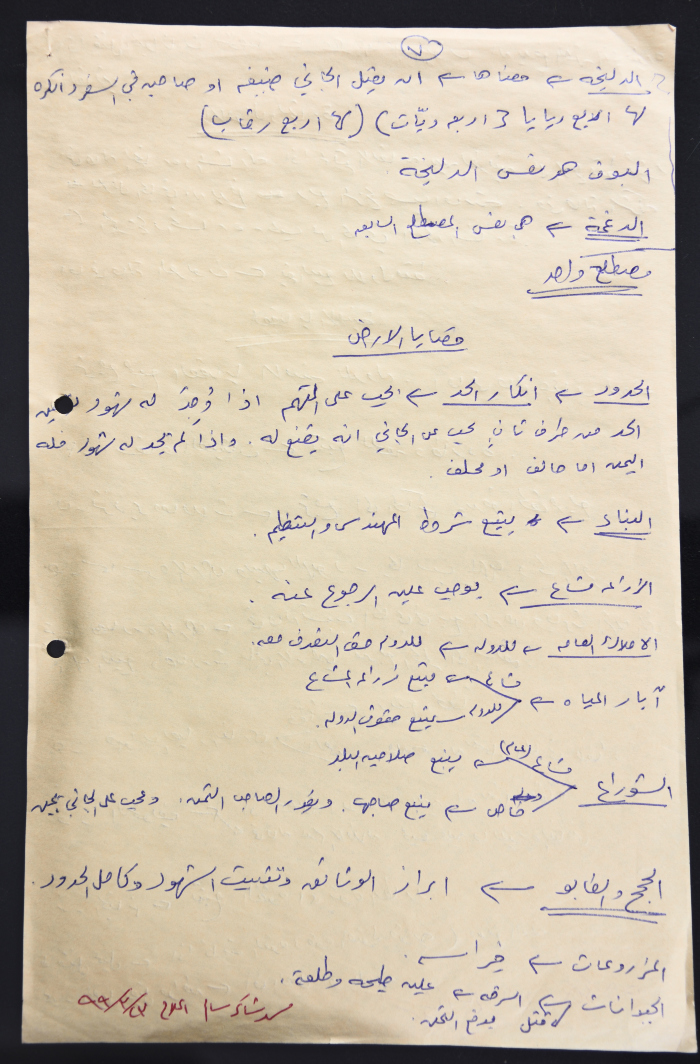 ٧
الدليخة ← معناها ← ان يقتل الجاني ضيفه او صاحبه في السفر وانكره
لها اربع ديات (لها اربع رقاب)
البوق هو نفس الدليخة
الدغمة ← هي نفس المصطلح السابق
مصطلح واحد
قضايا الارض
الحدود ← انكار الحد ← يجب على المتهم اذا وُجِدَ له شهود
الحد من طرف ثانٍ يجب على الجاني انه يقنع له. واذا لم يجد له شهود فله
اليمين اما حالف او محلف.
البناء ← يتبع شروط المهندس والتنظيم.
الزراعه مشاع ← يوجب عليه الرجوع عنه.
الاملاك العامه ← للدوله ← للدوله حق التصرف معه.
آبار المياه ← مشاع ← يتبع زراعه المشاع
للدوله ← يتبع حقوق الدوله.
الشوارع مشاع (عام) ← يتبع صلاحية البلد
خاص ← يتبع صاحبها. ويقرر لصاحب الثمن. ويجب على الجاني
الحجج والطابو ← ابراز الوثائق وتثبيت الشهود وكامل الحدود.
المزروعات ←
الحيوانات ← السرقه ← عليه طيحه وطلعة.
قتل يدفع الثمن.